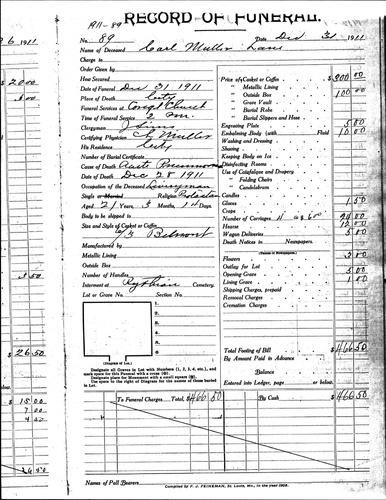 1911-89
RECORD OF FUNERAL.
6 1911
No. 89 Date, Dec 31 1911
Name of Deceased Carl Muller
Charge to
Order Given Price of Casket or Coffin
Hour Secured " Metallic Lining
Date of Funeral Dec 31 1911 " Outside Box 100 00
Place of Death City " Grave Vault
Funeral Services at Congl Church " Burial Robe
Time of Funeral Service 2 P.M. " Burial Slippers and Hose
Clergyman Engraving Plate 5 00
Certifying Physician Muller Embalming Body (with Fluid) 10 00
His Residence City Washing and Dressing
Number of Burial Certificate Shaving
Cause of Death Acute Pneumonia Keeping Body on Ice
Date of Death Dec 28 1911 Disinfecting Rooms
Occupation of the Deceased Liveryman Use of Catafalque and Drapery
Single or Married Religion Protestan " Folding Chairs
Aged 21 Years, 3 Months, 14 Days " Candelabrum
Body to be shipped to Candles
Size and Style of Casket or Coffin Gloves 1 50
Belmont Crape
Manufactured by Number of Carriages 4 @ 6 00
Metallic Lining Hearse
Outside Box Wagon Deliveries 5 00
Number of Handles Death Notices in Newspapers.
Interment at Cemetery. Flowers
Lot or Grave No. Section No. Outlay for Lot 5 00
1. Opening Grave
2. Lining Grave 1 00
3. Shipping Charges, prepaid
4. Removal Charges
5. Cremation Charges
6.
7.
8.
(Diagram of Lot.) Total Footing of Bill $466 50
Designate all Graves in Lot with Numbers (1, 2, 3, 4, etc.), and By Amount Paid in Advance
mark space for this Funeral with a cross (✠)
Designate place for Monument with a small square Balance
Use space to the right of Diagram for the names of those buried in Lot. Entered into Ledger, page or below.
To Funeral Charges Total, $466 50 By Cash $466 50
Names of Pall Bearers
Compiled by F. J. FEINEMAN, St. Louis, Mo., in the year 1904.
$20 00
$26 50
$15 00
7 00
26 50